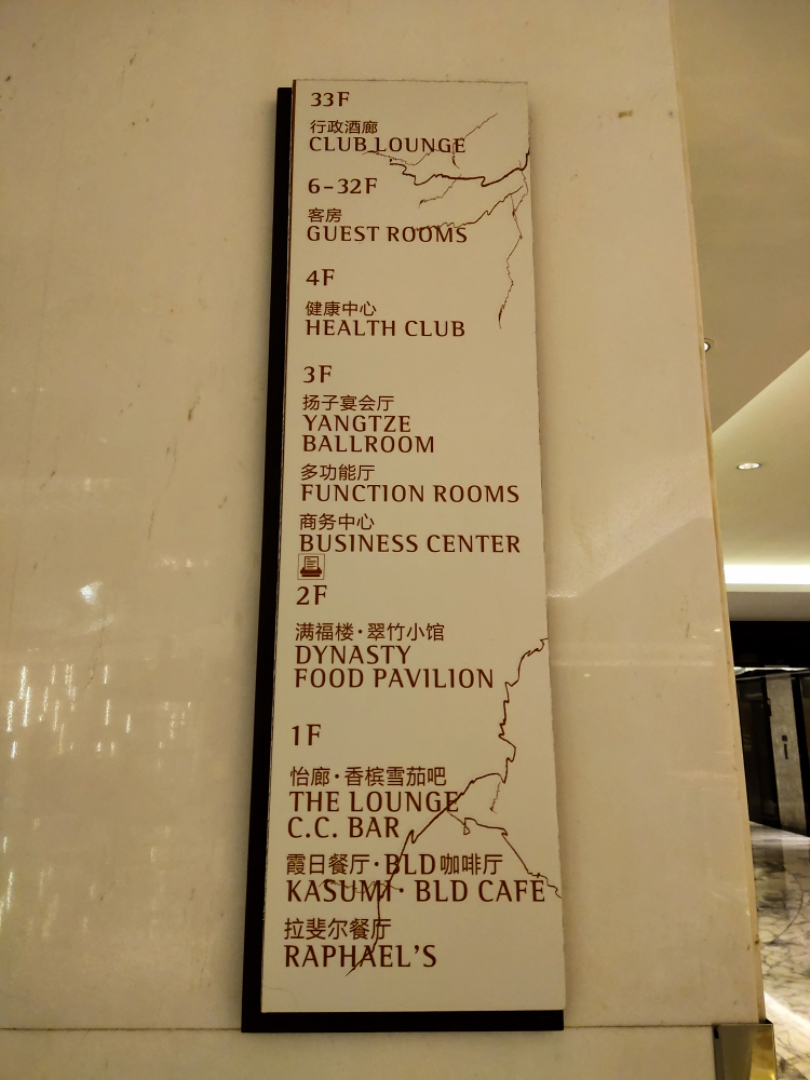 33F
行政酒廊
CLUB LOUNGE
6-32F
客房
GUEST ROOMS
4F
健康中心
HEALTH CLUB
3F
扬子宴会厅
YANGTZE
BALLROOM
多功能厅
FUNCTION ROOMS
商务中心
BUSINESS CENTER
2F
满福楼·翠竹小馆
DYNASTY
FOOD PAVILION
1F
怡廊·香槟雪茄吧
THE LOUNGE
C.C. BAR
霞日餐厅·BLD咖啡厅
KASUMI · BLD CAFE
拉斐尔餐厅
RAPHAEL'S